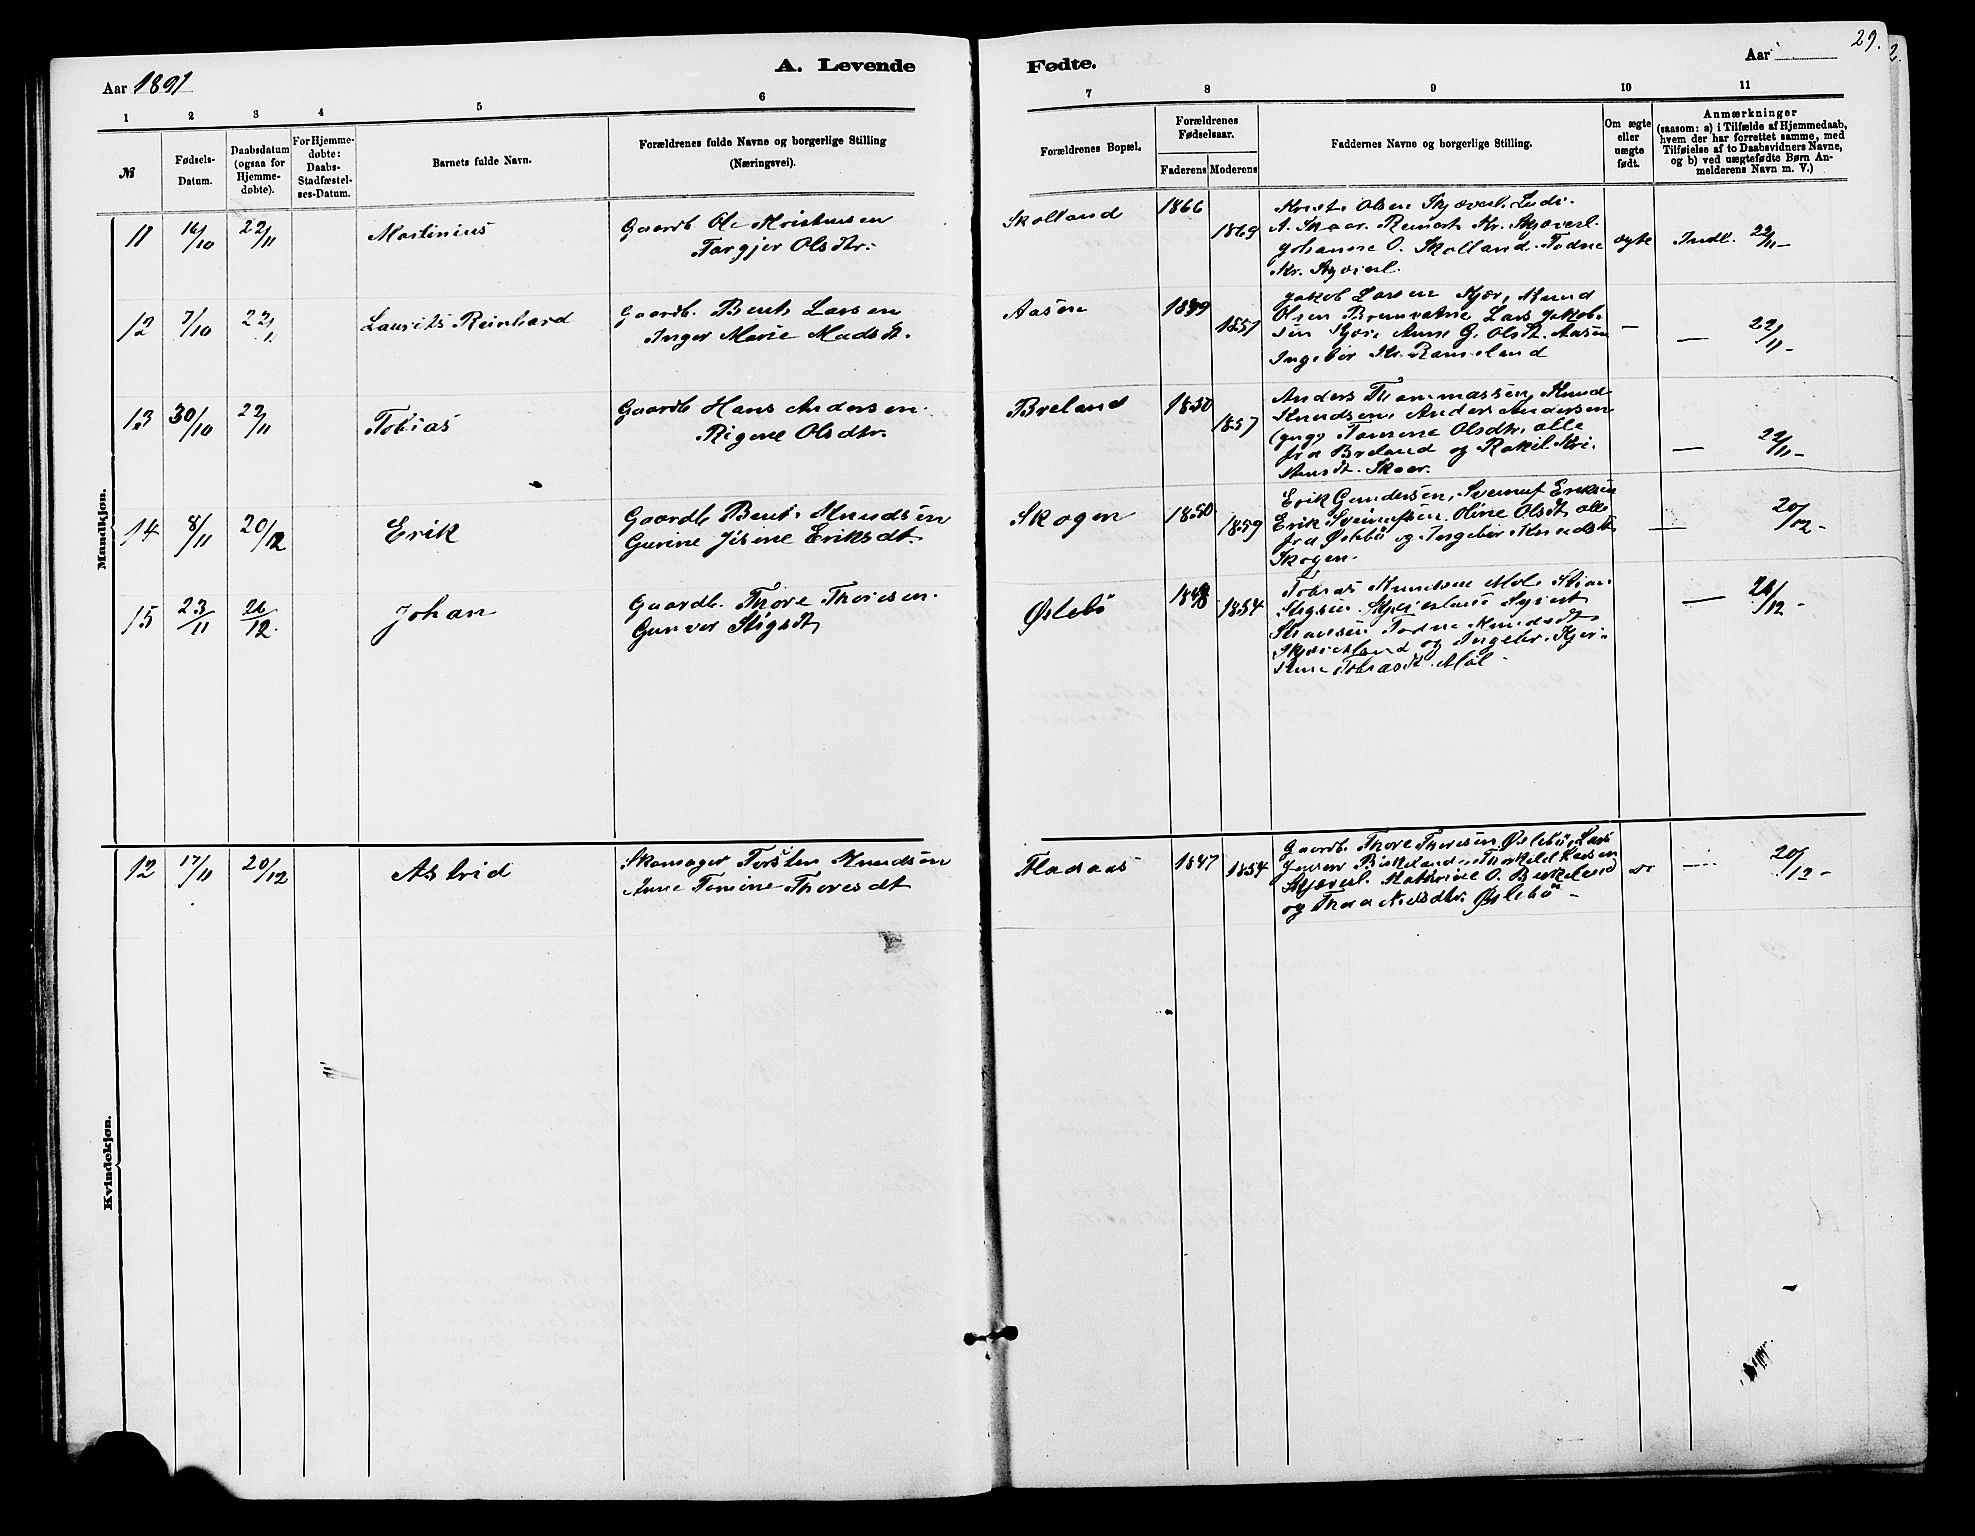 29.
Aar 1891
A. Levende
Fødte.
Aar
1
2
3
4
5
6
7
8
9
10
11
№
Fødsels-
Datum.
Daabsdatum
(ogsaa for
Hjemme-
døbte).
For Hjemme-
døbte:
Daabs-
Stadfæstel-
ses-Datum.
Barnets fulde Navn.
Forældrenes fulde Navne og borgerlige Stilling
(Næringsvei).
Forældrenes Bopæl.
Forældrenes
Fødselsaar.
Faderens
Moderens
Faddernes Navne og borgerlige Stilling.
Om ægte
eller
uægte
født.
Anmærkninger
(saasom: a) i Tilfælde af Hjemmedaab,
hvem der har forrettet samme, med
Tilføielse af to Daabsvidners Navne,
og b) ved uægtefødte Børn An-
melderens Navn m. V.)
Mandkjøn.
11 16/10 22/11 Martinius
Gaardb. Ole Kristensen
Torgjer Olsdtr.
Skolland 1866 1869
Olsen Skjæverl.
A. Skaar. Reinert Kr. Skjæverl.
Johanne O. Skolland. Todne
Kr. Skjæverl.
ægte Indl. 22/11 -
12 7/10 22/11 Laurits Reinhard
Gaardb. Bent Larsen
Inger Marie Madsdt.
Aasen 1849 1851
Jakob Larsen Kjær, Knud
Olsen Lars Jakob-
sen Kjær, Anne G. Olsdt. Aasen
Ingebor Kr. Ramsland
- - 22/11 -
13 30/10 22/11 Tobias
Gaardb. Hans Andersen
Rigene Olsdtr.
Breland 1850 1857
Anders Thommassen, Knud
Knudsen, Anders Andersen
(yngr) Tomine Olsdtr. alle
fra Breland og Rakel Kri-
stensdt. Skaar.
- 22/11 -
14 8/11 20/12 Erik
Gaardb. Bent Knudsen
Gurine Jisene Eriksdt.
Skogen 1850 1859
Erik Gundersen, Sveinuf Eriksen
Erik Sveinufsen, Oline Olsdt alle
fra Øslebö og Ingebor Knudsdt
Skogen.
- 20/12 -
15 23/11 26/12 Johan
Gaardb. Thore Thoresen
Gunvor Stigsdt
Øslebö 1848 1854
Tobias Knudsen Møl, Stian
Stigsen, Skjæveland, Syvert
Todne Knudsdt
Skjæveland og Ingebr. Kjer-
stine Tobiasdt. Møl -
- 26/12 -
Kvindekjøn.
12 17/11 20/12 Astrid
Skomager Torsten Knudsen
Anne Tomine Thoresdt
Fladaas 1847 1854
Gaardb Thore Thoresen Øslebö, Lars
Jensen Birkeland, Thorkild Larsen
Skjæverl. Kathrine O. Birkeland
og Thora Nielsdtr. Øslebö -
do - 20/12 -